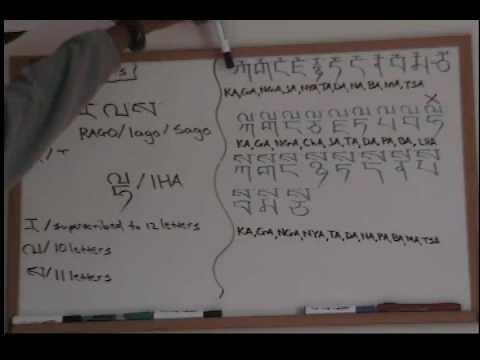 ར ལ ས
RAGO/lago/Sago
ལྷ / lHA
ར / superscribed to 12 letters
ལ / 10 letters
ས / 11 letters
རྐ རྒ རྔ རྗ རྙ རྟ རྡ རྣ རྦ རྨ རྩ
KA, GA, NGA, SA, NYA, TA, DA, NA, BA, MA, TSA
ལྐ ལྒ ལྔ ལྕ ལྗ ལྟ ལྡ ལྤ ལྦ ལྷ
KA, GA, NGA, ChA, SA, TA, DA, PA, BA, LHA
སྐ སྒ སྔ སྙ སྟ སྡ སྣ སྤ
སྦ སྨ སྩ
KA, GA, NGA, NYA, TA, DA, NA, PA, BA, MA, TSA